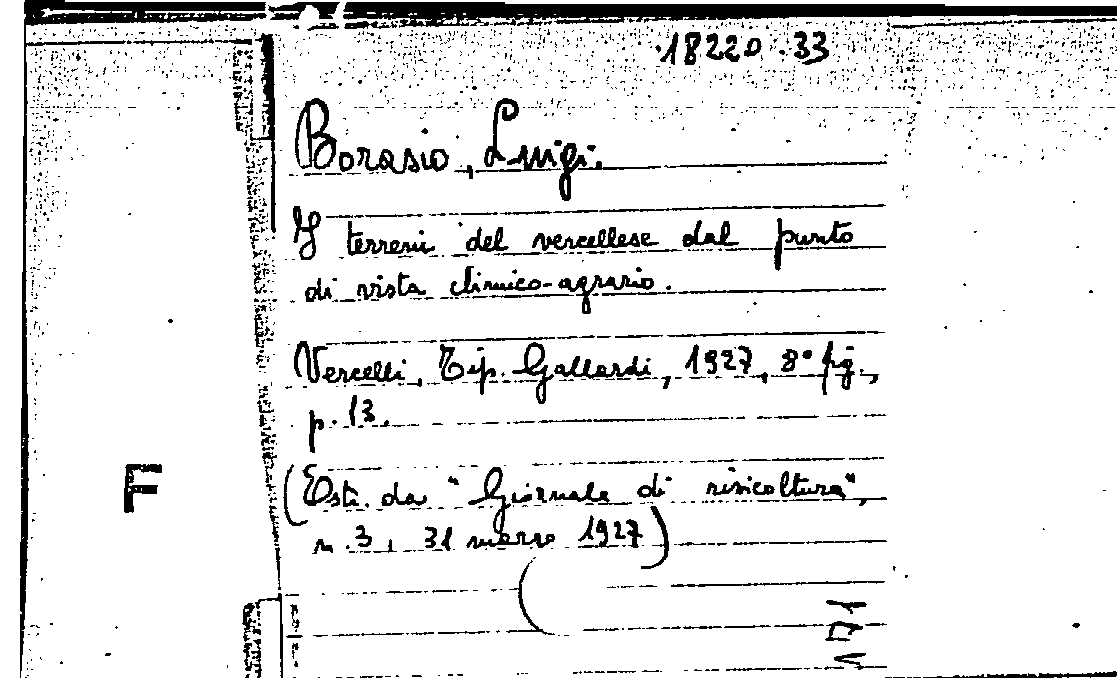 18220.33
Borasio, Luigi.
I terreni del vercellese dal punto
di vista chimico-agrario.
Vercelli, Tip. Gallardi, 1927, 8° fig.,
p. 13.
F
(Estr. da "Giornale di risicoltura",
n. 3, 31 marzo 1927)